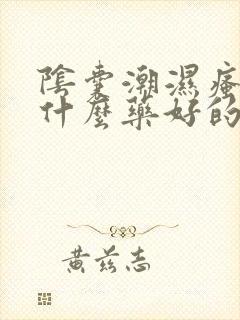 陰囊潮濕瘙
什麼藥好的
黃茲志